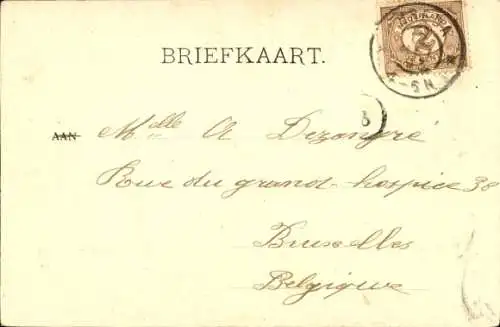 BRIEFKAART.
AAN Melle A Dezangré
Rue du grand-hospice 38
Bruxelles
Belgique